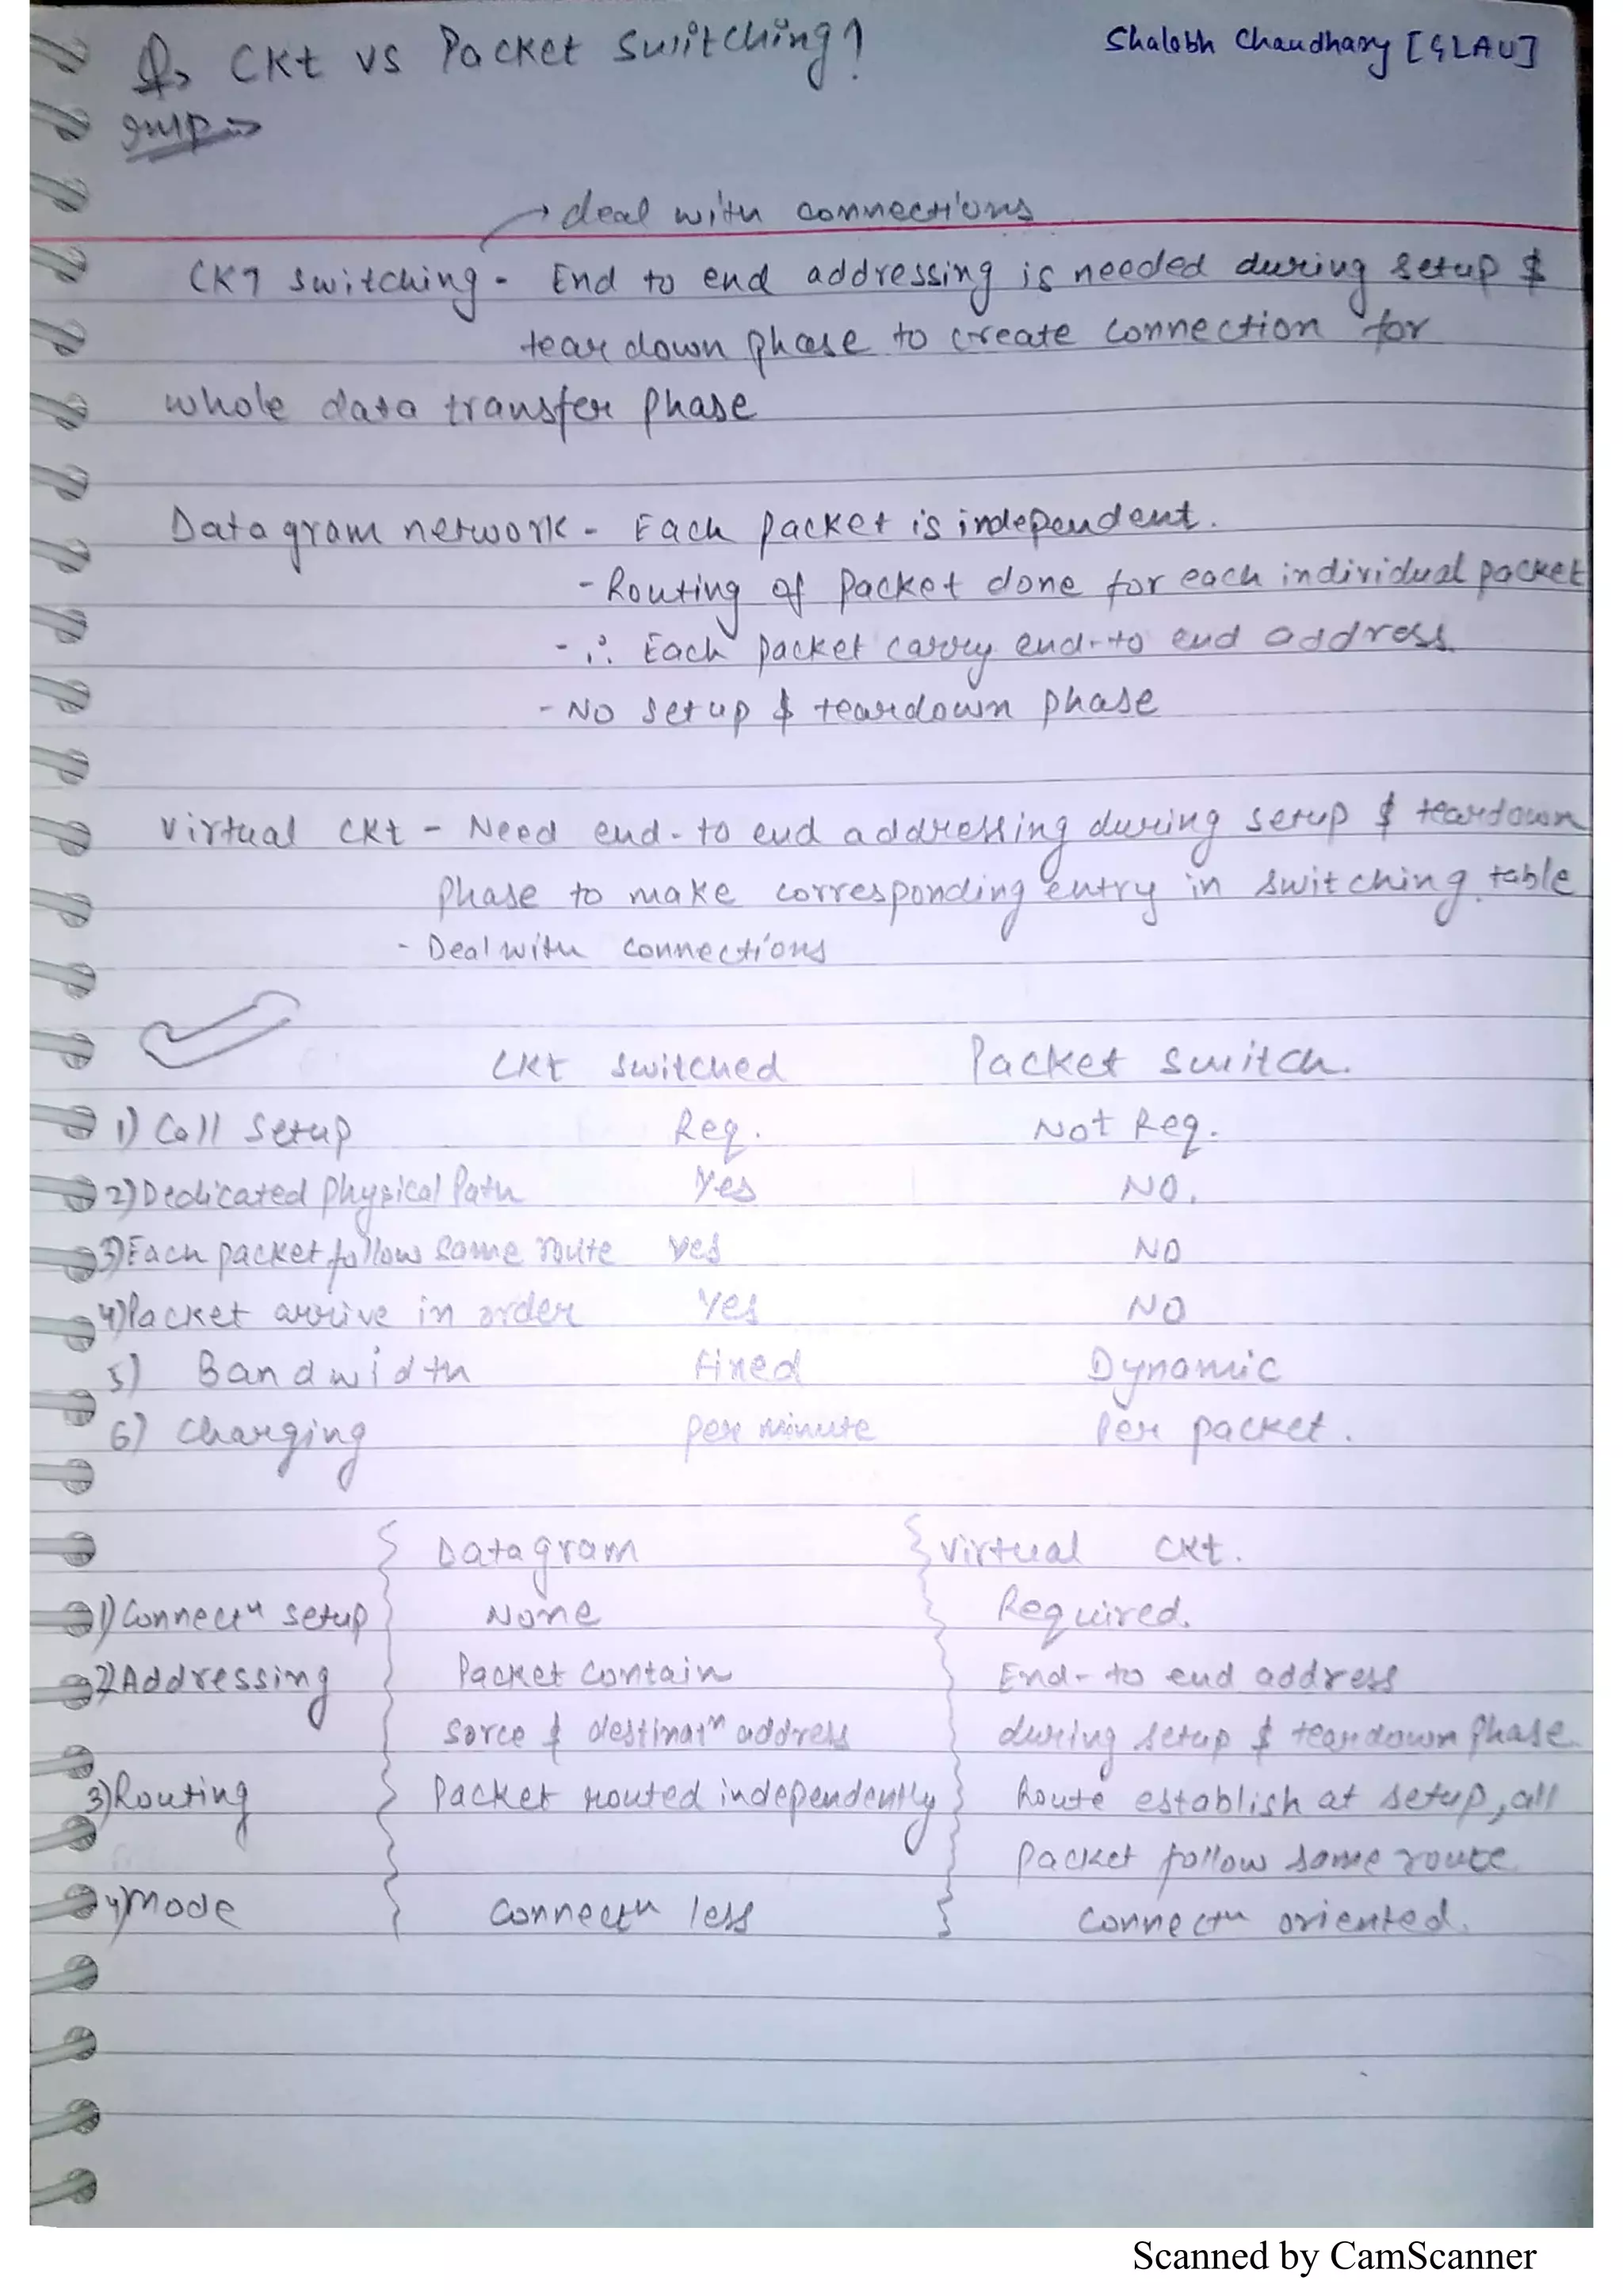 Q> Ckt vs Packet Switching?
Shalabh Chaudhary [GLAU]
Imp→
→ deal with connections
CKT switching - End to end addressing is needed during setup &
tear down phase to create connection for
whole data transfer phase
Datagram network - Each packet is independent.
- Routing of packet done for each individual packet
- ∴ Each packet carry end-to end address
- No setup & teardown phase
Virtual ckt - Need end-to end addressing during setup & teardown
phase to make corresponding entry in switching table
- Deal with connections
CKt switched Packet switch.
1) Call Setup Req. Not Req.
2) Dedicated Physical Path Yes NO.
3) Each packet follow same route Yes NO
4) Packet arrive in order Yes NO
5) Bandwidth Fixed Dynamic
6) Charging per minute Per packet.
Datagram Virtual Ckt.
1) Connectn setup None Required.
2) Addressing Packet Contain End-to end address
Sorce & destinatn address during setup & teardown Phase
3) Routing Packet routed independently Route establish at setup, all
packet follow same route
4) Mode Connectn less Connectn oriented.
Scanned by CamScanner